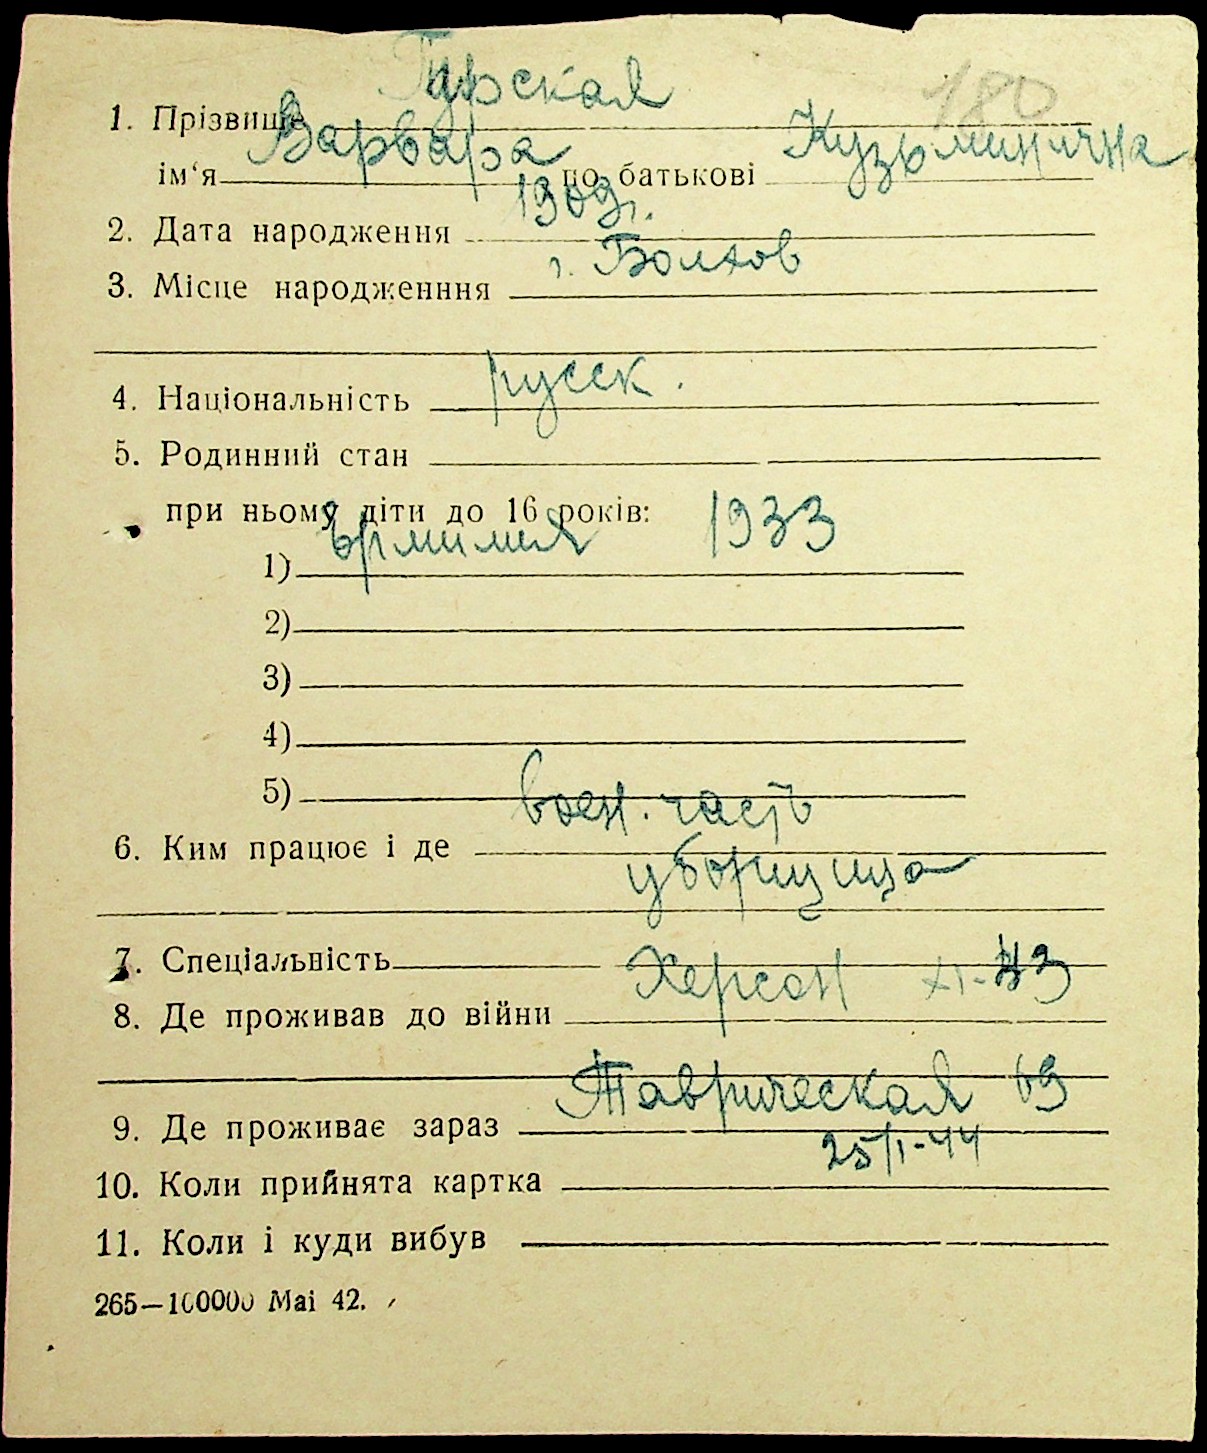 180
Турская
1. Прізвище
Варвара Кузьминична
ім‘я по батькові
1909 г.
2. Дата народження
г. Болхов
3. Місце народженння
русск.
4. Національність
5. Родинний стан
при ньому діти до 16 років: 1933
1)
2)
3)
4)
5)
воен. часть
6. Ким працює і де
уборщица
7. Спеціальність
Херсон XI-43
8. Де проживав до війни
Таврическая 69
9. Де проживає зараз
25/I-44
10. Коли прийнята картка
11. Коли і куди вибув
265—100000 Mai 42.